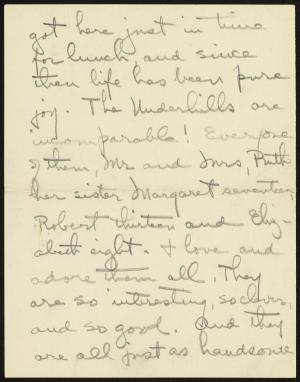 got here just in time
for lunch, and since
then life has been pure
joy. The Underhills are
incomparable! Everyone
of them, Mr and Mrs, Ruth
her sister Margaret seventeen,
Robert thirteen and Eliz-
abeth eight. I love and
adore them all. They
are so interesting, so clever,
and so good. And they
are all just as handsome